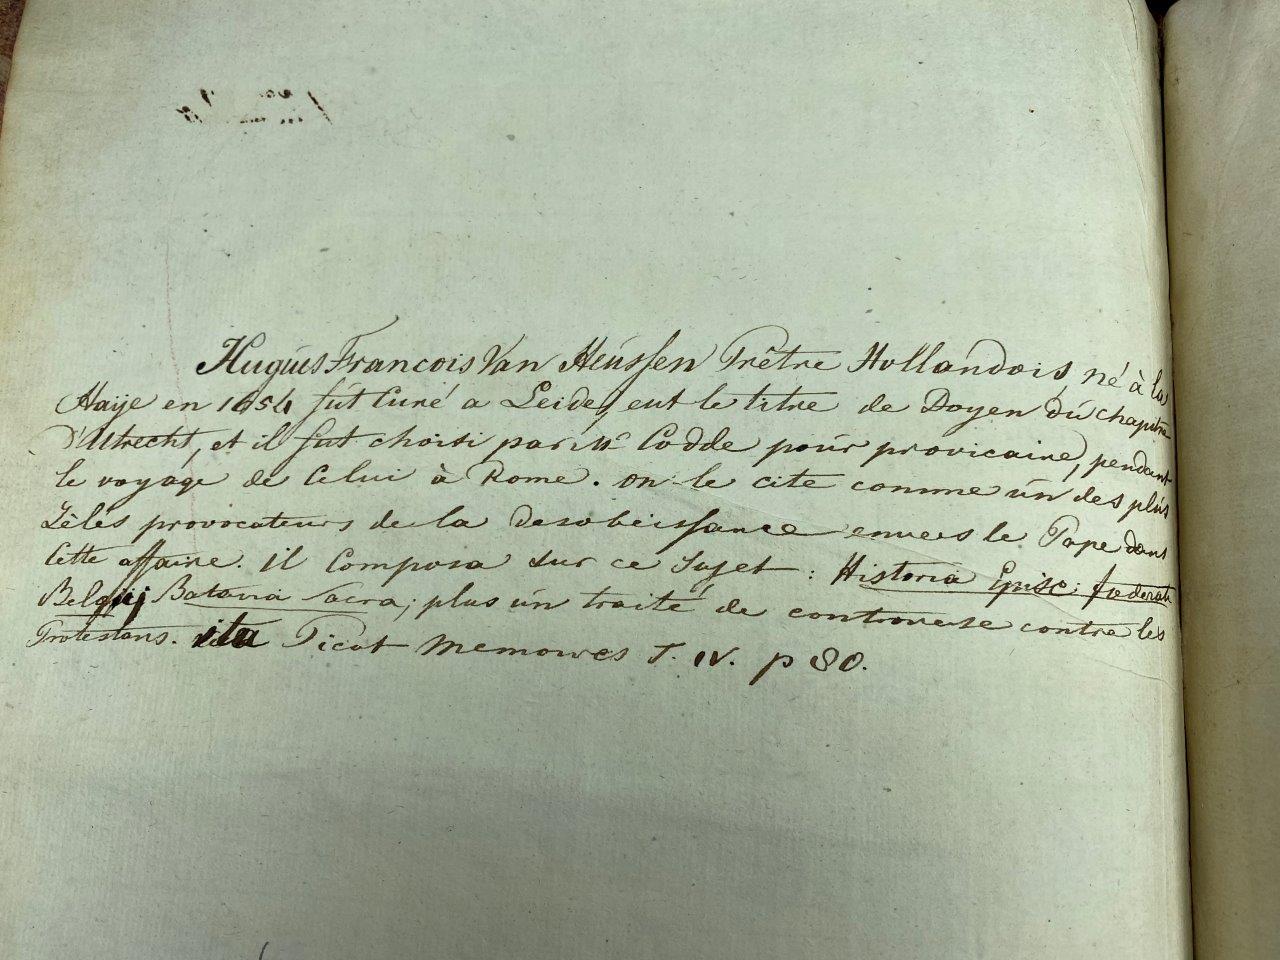 Hugúes Francois Van Heússen Prêtre Hollandois, né à la
Haÿe en 1654 fút Curé a Leide, eut le titre de Doyen dú chapitre
d'Utrecht, et il fút choisi par Mr Codde poúr provicaire, pendant
le voyage de Celui à Rome. on le cite comme ún des plús
Zèlés provocateurs de la desobeissance envers le Pape dans
Cette affaire. il Composa sur ce Sujet : Historia Episc: fœderati
Belgij Batavia Sacra; plus ún traité de controverse contre les
Protestans. ita Picot Memoires T. IV. p 80.